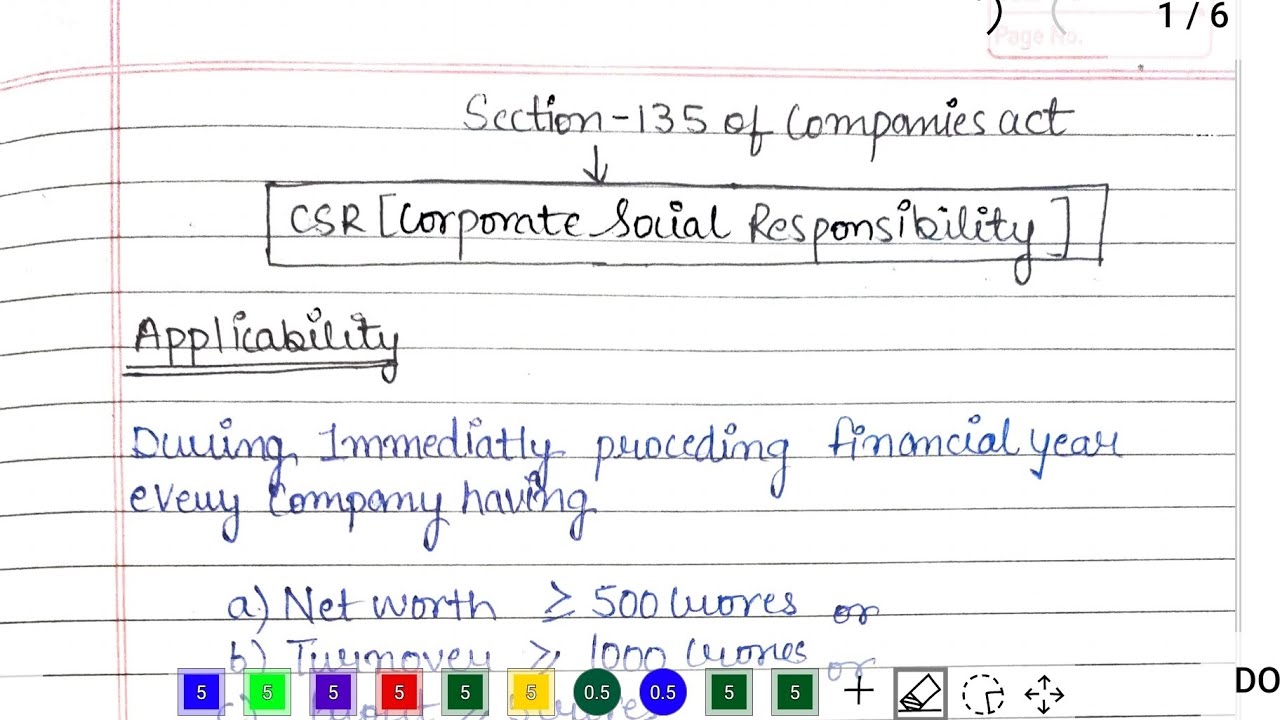 1 / 6
Page No.
Section-135 of Companies act
↓
CSR [Corporate Social Responsibility]
Applicability
During Immediatly proceding financial year
every Company having
a) Net worth ≥ 500 Crores or
b) Turnover ≥ 1000 Crores or
5 5 5 5 5 5 0.5 0.5 5 5
DO